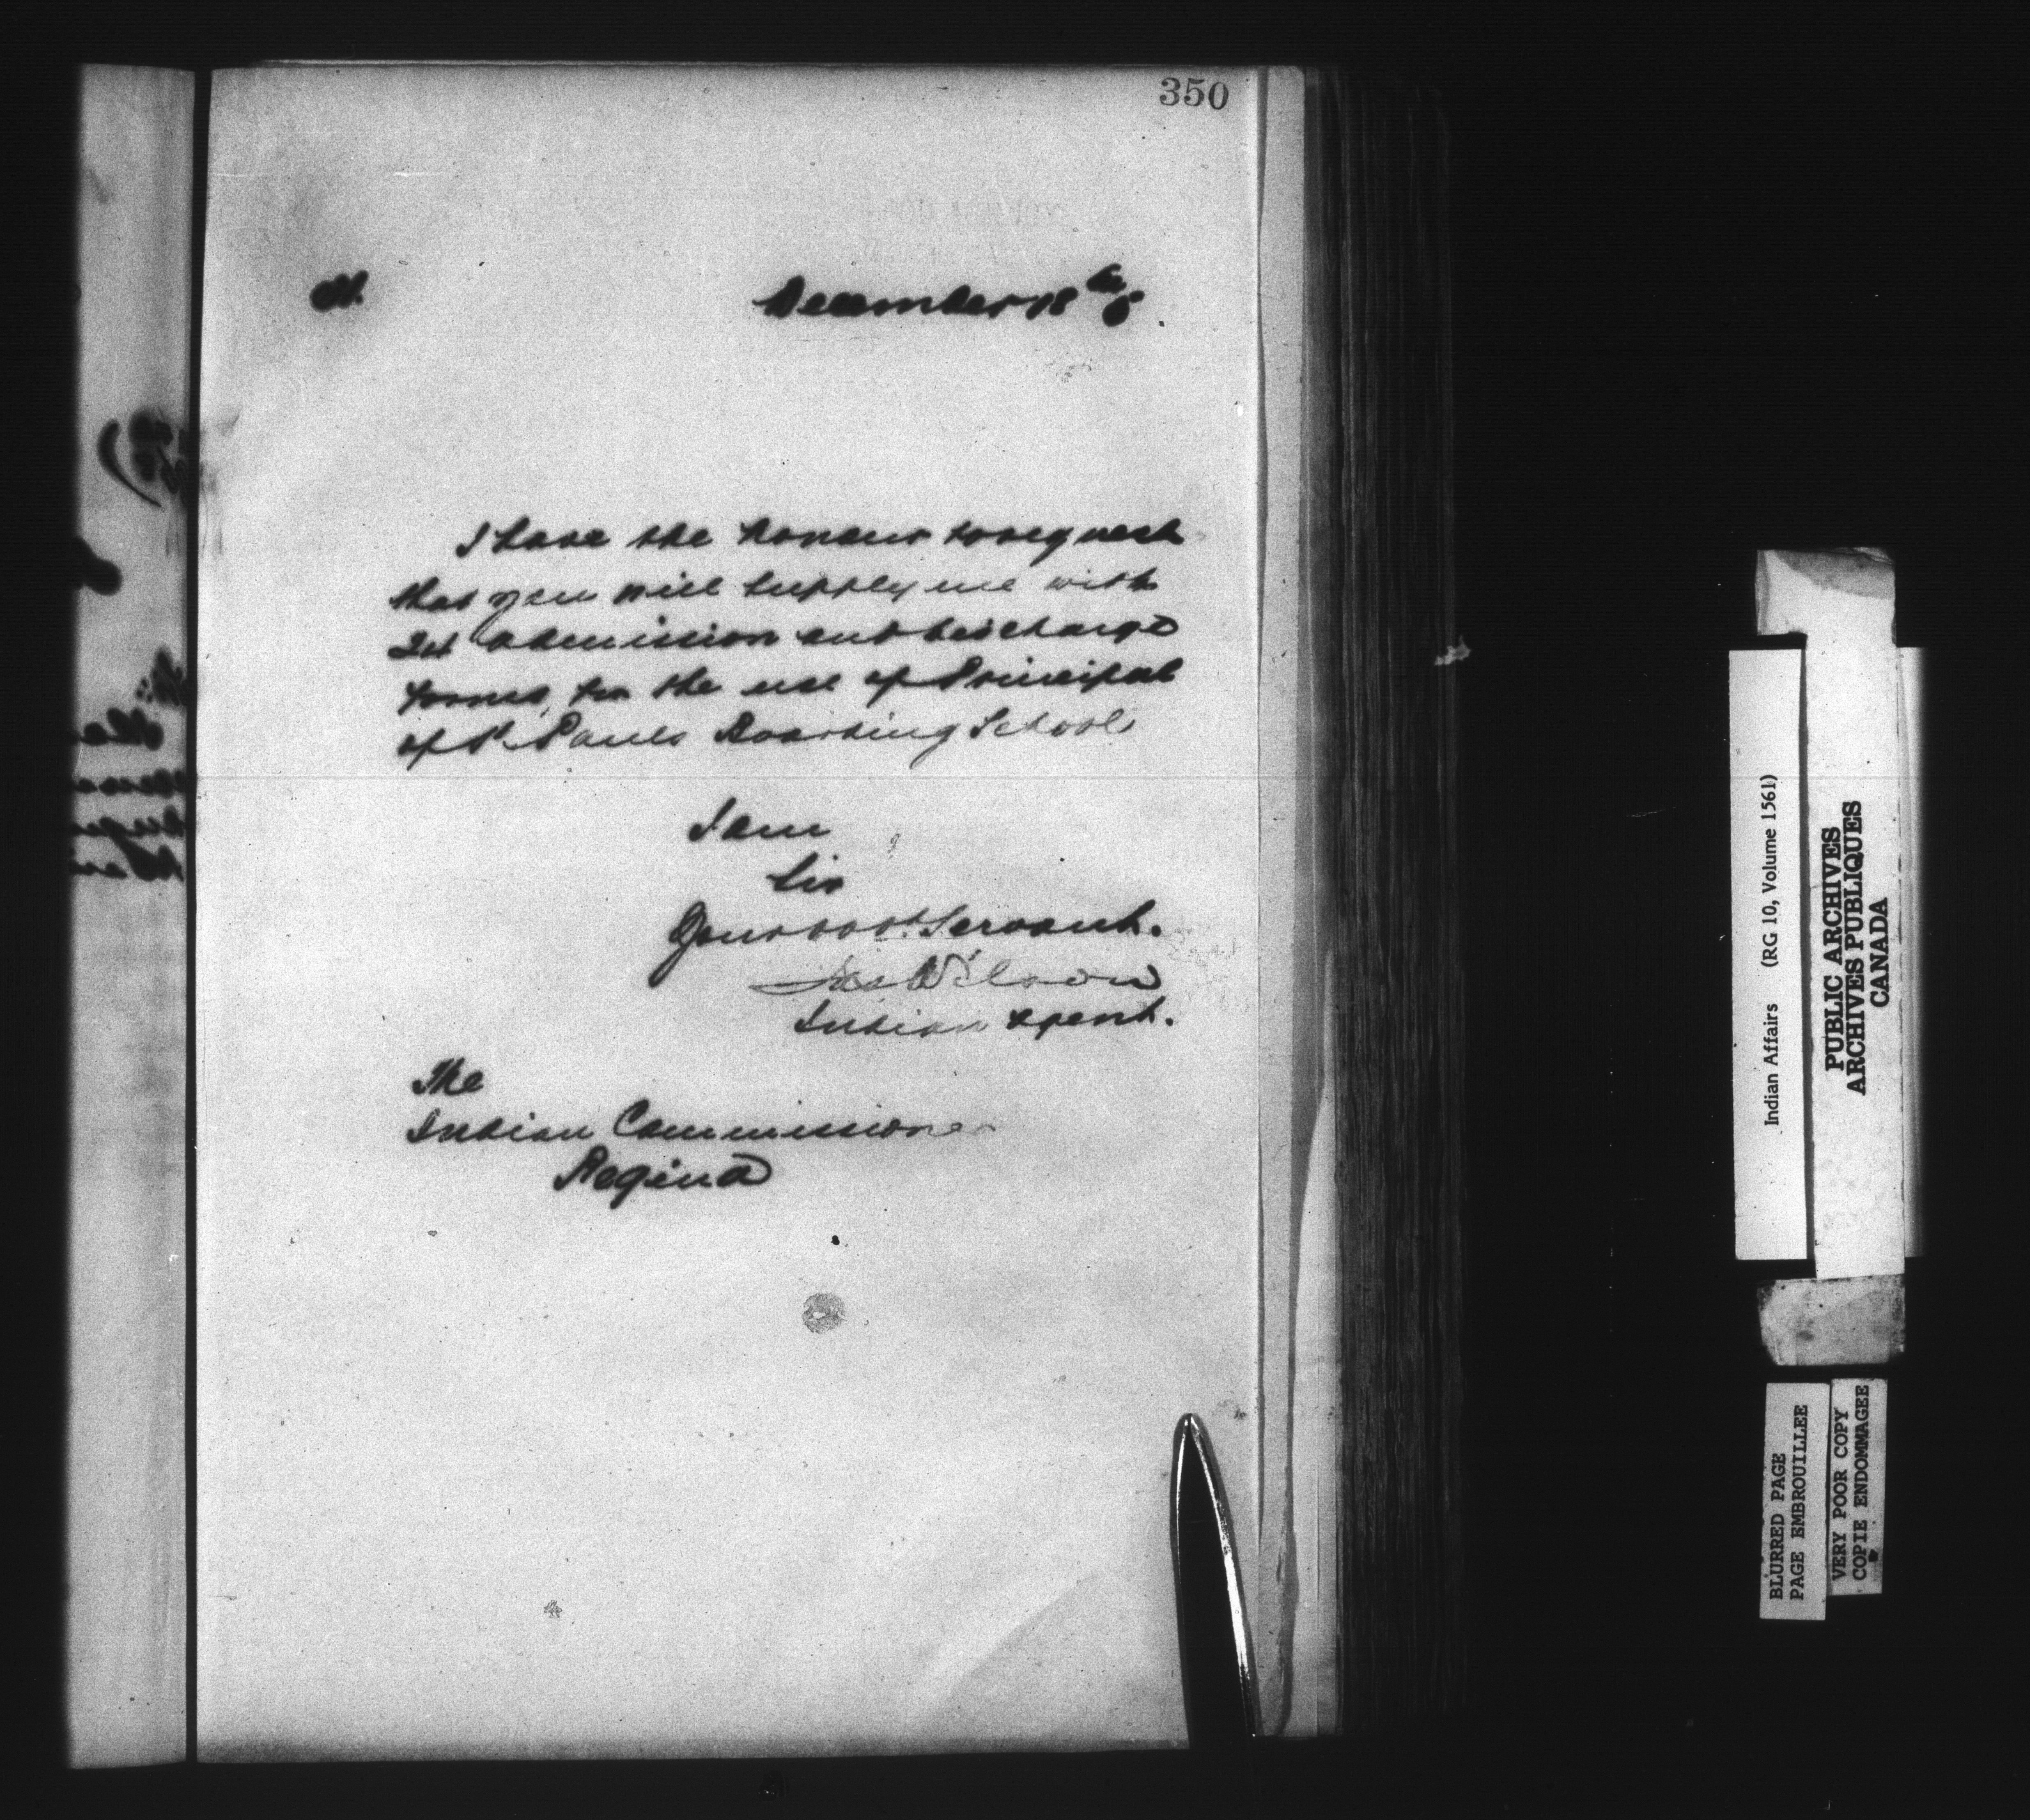 350
December 18th 5
I have the honour to request
that you will supply me with
24 admission and discharge
forms, for the use of Principal
of St Pauls Boarding School
I am
Sir
Your obdt Servant.
Jas Wilson
Indian Agent.
The
Indian Commissioner
Regina
Indian Affairs (RG 10, Volume 1561)
PUBLIC ARCHIVES
ARCHIVES PUBLIQUES
CANADA
BLURRED PAGE
PAGE EMBROUILLEE
VERY POOR COPY
COPIE ENDOMMAGEE